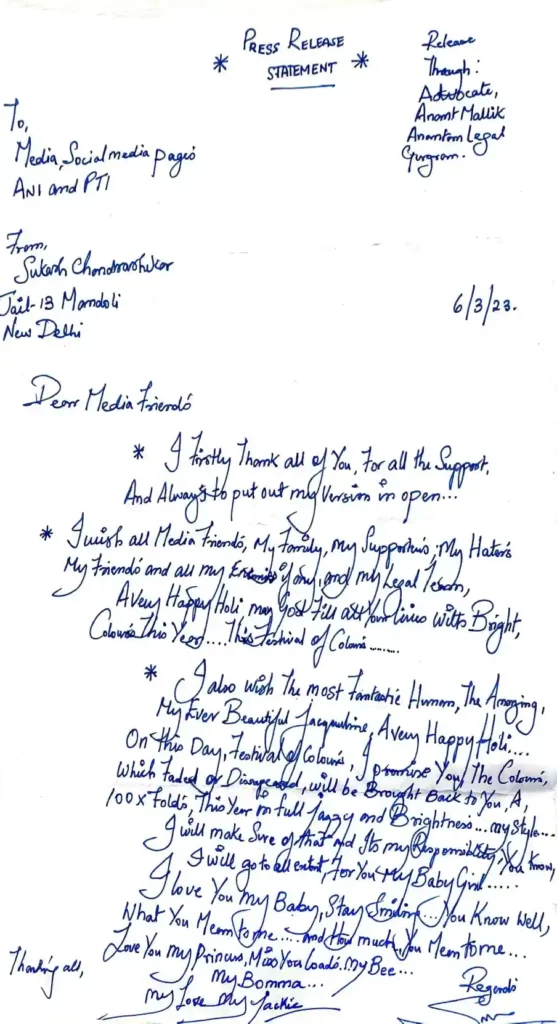 * PRESS RELEASE STATEMENT *
Release
Through:
Advocate,
Anant Mallik
Anantam Legal
Gurgram.
To,
Media, Social media pages
ANI and PTI
From,
Sukash Chandrashekar
Jail-13 Mandoli
New Delhi
6/3/23.
Dear Media Friends
* I Firstly Thank all of You, For all the Support,
And Always to put out my Version in open...
* I wish all Media Friends, My Family, My Supporters, My Haters
My Friends and all my Enemies if any, and my Legal Team,
A Very Happy Holi may God Fill all Your lives With Bright,
Colours This Year.... This Festival of Colours........
* I also wish The most Fantastic Human, The Amazing,
My Ever Beautiful Jacqueline, A Very Happy Holi....
On this Day, Festival of Colours, I promise You, The Colours,
Which Faded or Disappeared, will be Brought Back to You, A,
100 x Folds, This Year in full Jazzy and Brightness... my Style...
I will make Sure of that and Its my Responsibility, You Know,
I will go to all extent, For You My Baby Girl.....
I love You my Baby, Stay Smiling... You Know Well,
What You Mean to me.... and How much You Mean to me...
Love You my Princess, Miss You Loads, My Bee...
My Bomma...
my Love My Jackie
Thanking all,
Regards